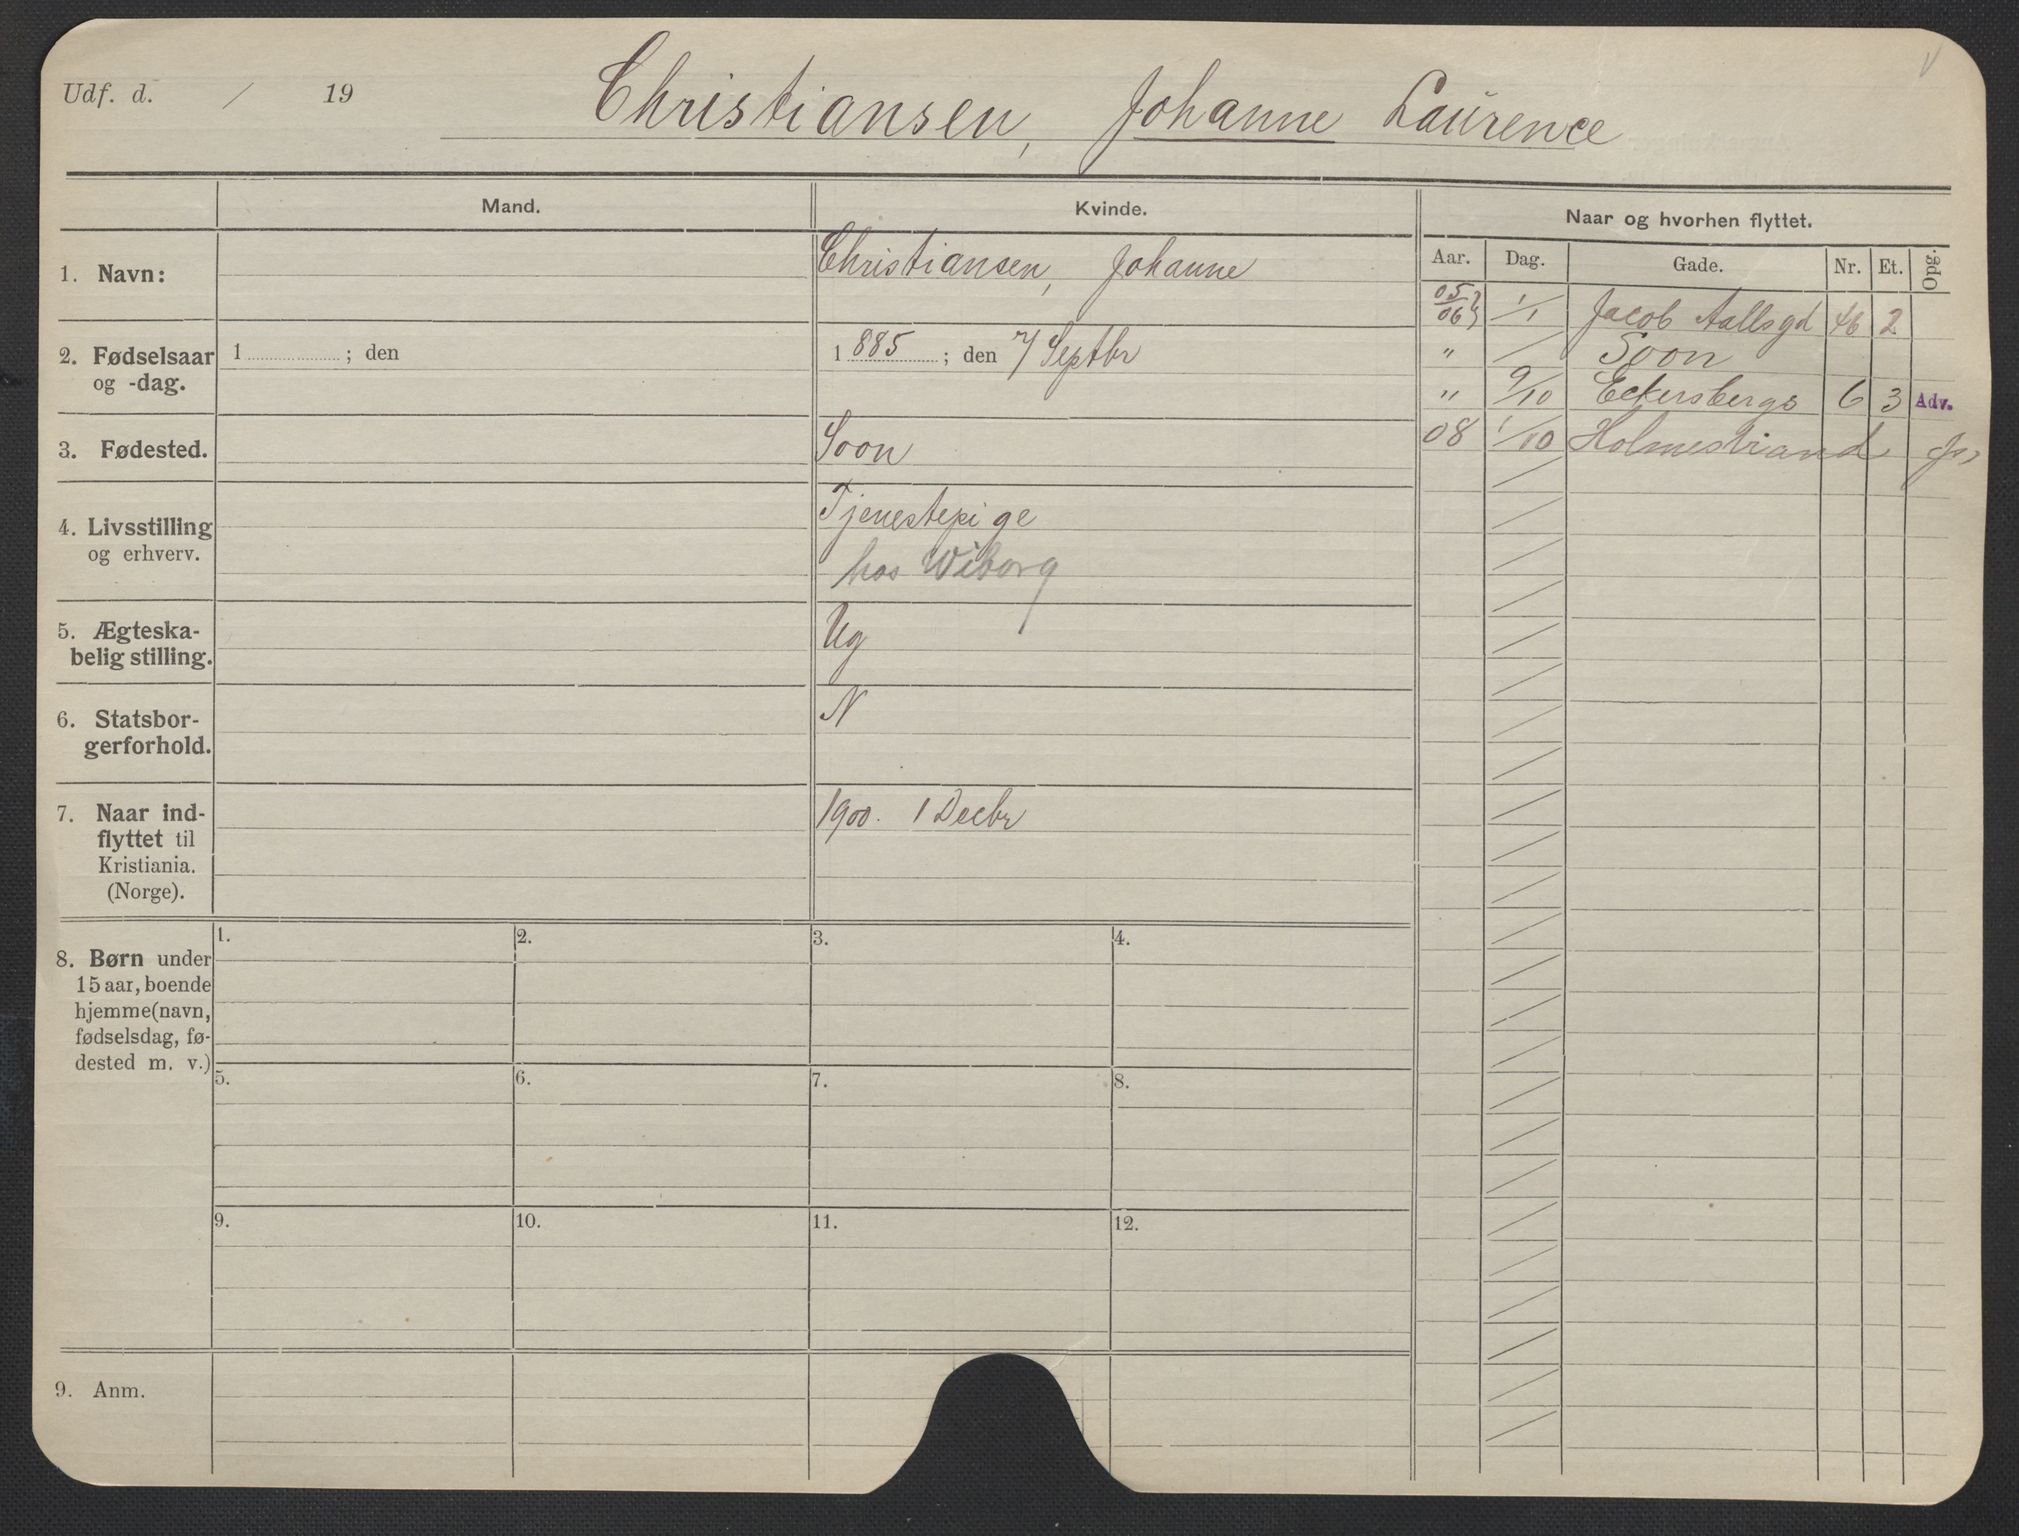 Udf. d. / 19 Christiansen, Johanne Laurence
Mand. Kvinde. Naar og hvorhen flyttet.
Aar. Dag. Gade. Nr. Et. Opg.
1. Navn: Christiansen, Johanne
05/06 1/1 Jacob Aallsgd 46 2
2. Fødselsaar
og -dag.
1 ; den
1 885 ; den 7/ Septbr
" / Soon
" 9/10 Eckersbergs 6 3 Adv.
3. Fødested. Soon
08 1/10 Holmestrand
4. Livsstilling
og erhverv.
Tjenestepige
hos Wiborg
5. Ægteska-
belig stilling.
Ug
6. Statsbor-
gerforhold.
N
7. Naar ind-
flyttet til
Kristiania.
(Norge).
1900. 1 Decbr
8. Børn under
15 aar, boende
hjemme (navn,
fødselsdag, fø-
dested m. v.)
1. 2. 3. 4.
5. 6. 7. 8.
9. 10. 11. 12.
9. Anm.